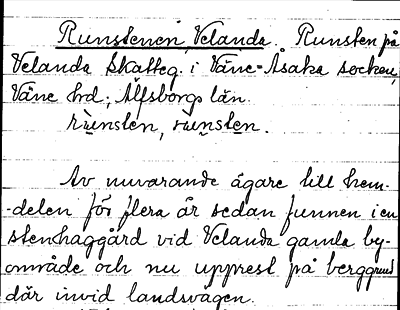 Runstenen Velanda. Runsten på
Velanda Skatteg. i Väne-Åsaka socken,
Väne hd; Älfsborgs län.
runsten, runsten.
Av nuvarande ägare till hem-
-delen för flera år sedan funnen i en
stenhaggård vid Velanda gamla by-
område och nu upprest på berggrund
där invid landsvägen.